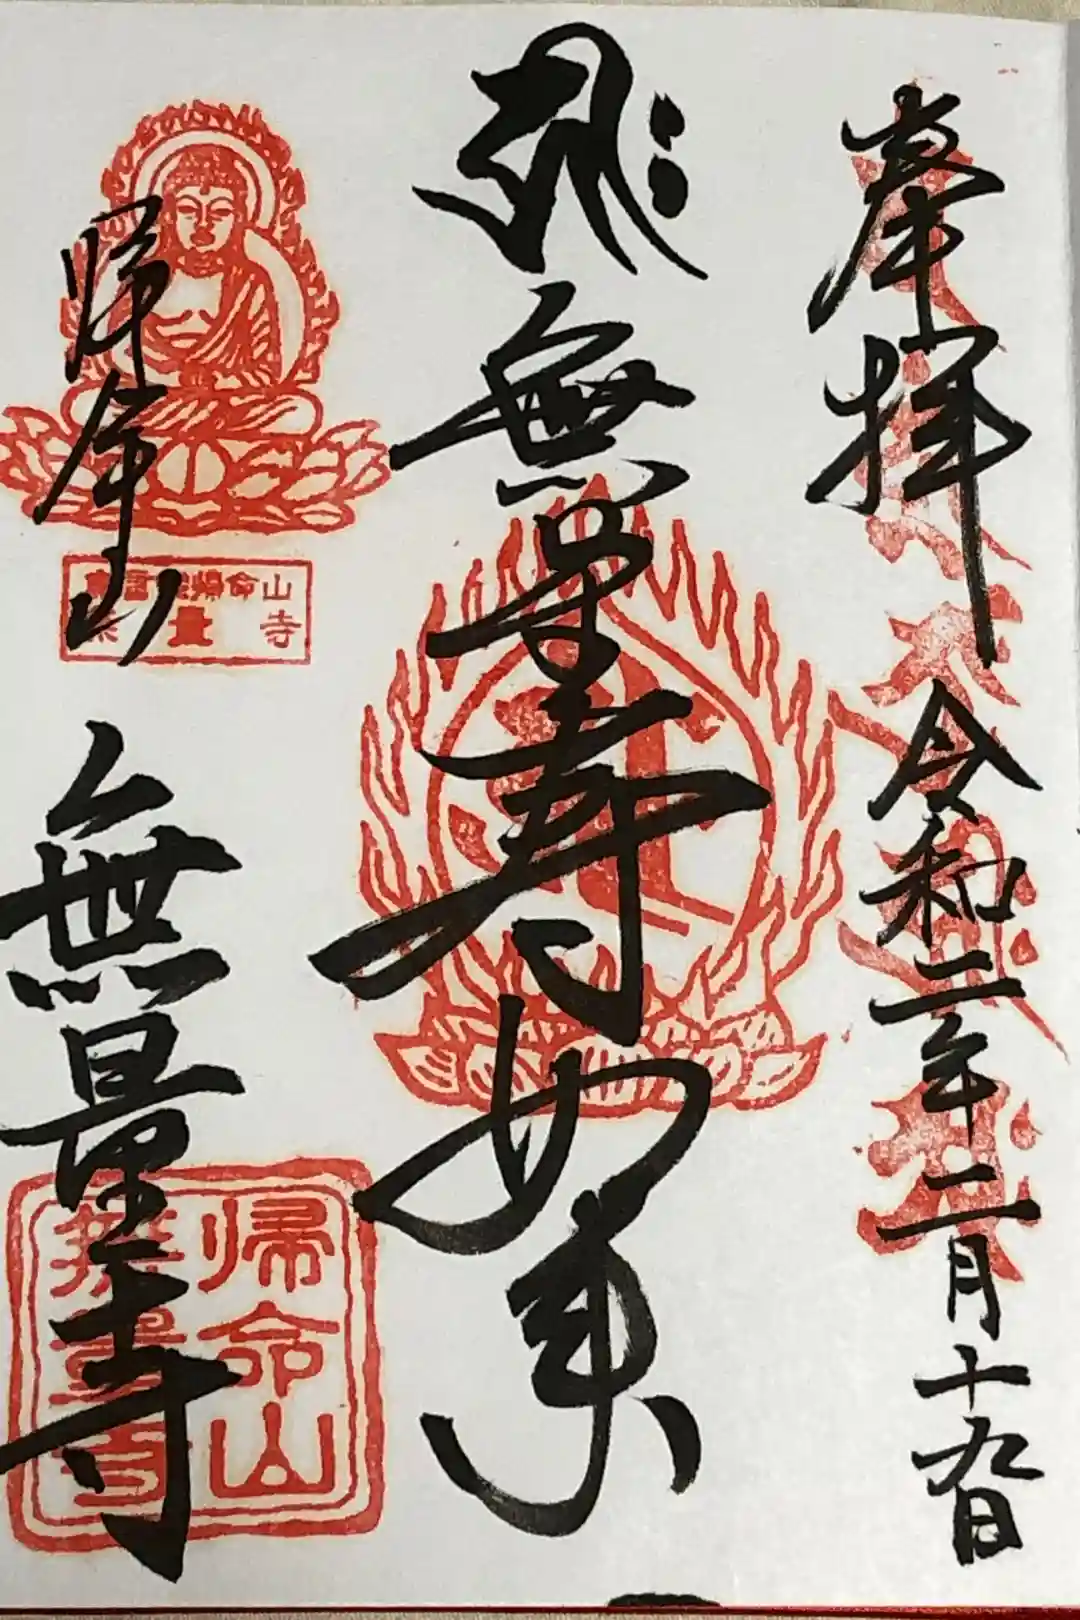 奉拝
令和二年二月十九日
𑖮𑖿𑖨𑖱𑖾
無量寿如来
帰命山
無量寺
帰命山
量
寺
帰命山
無量寺